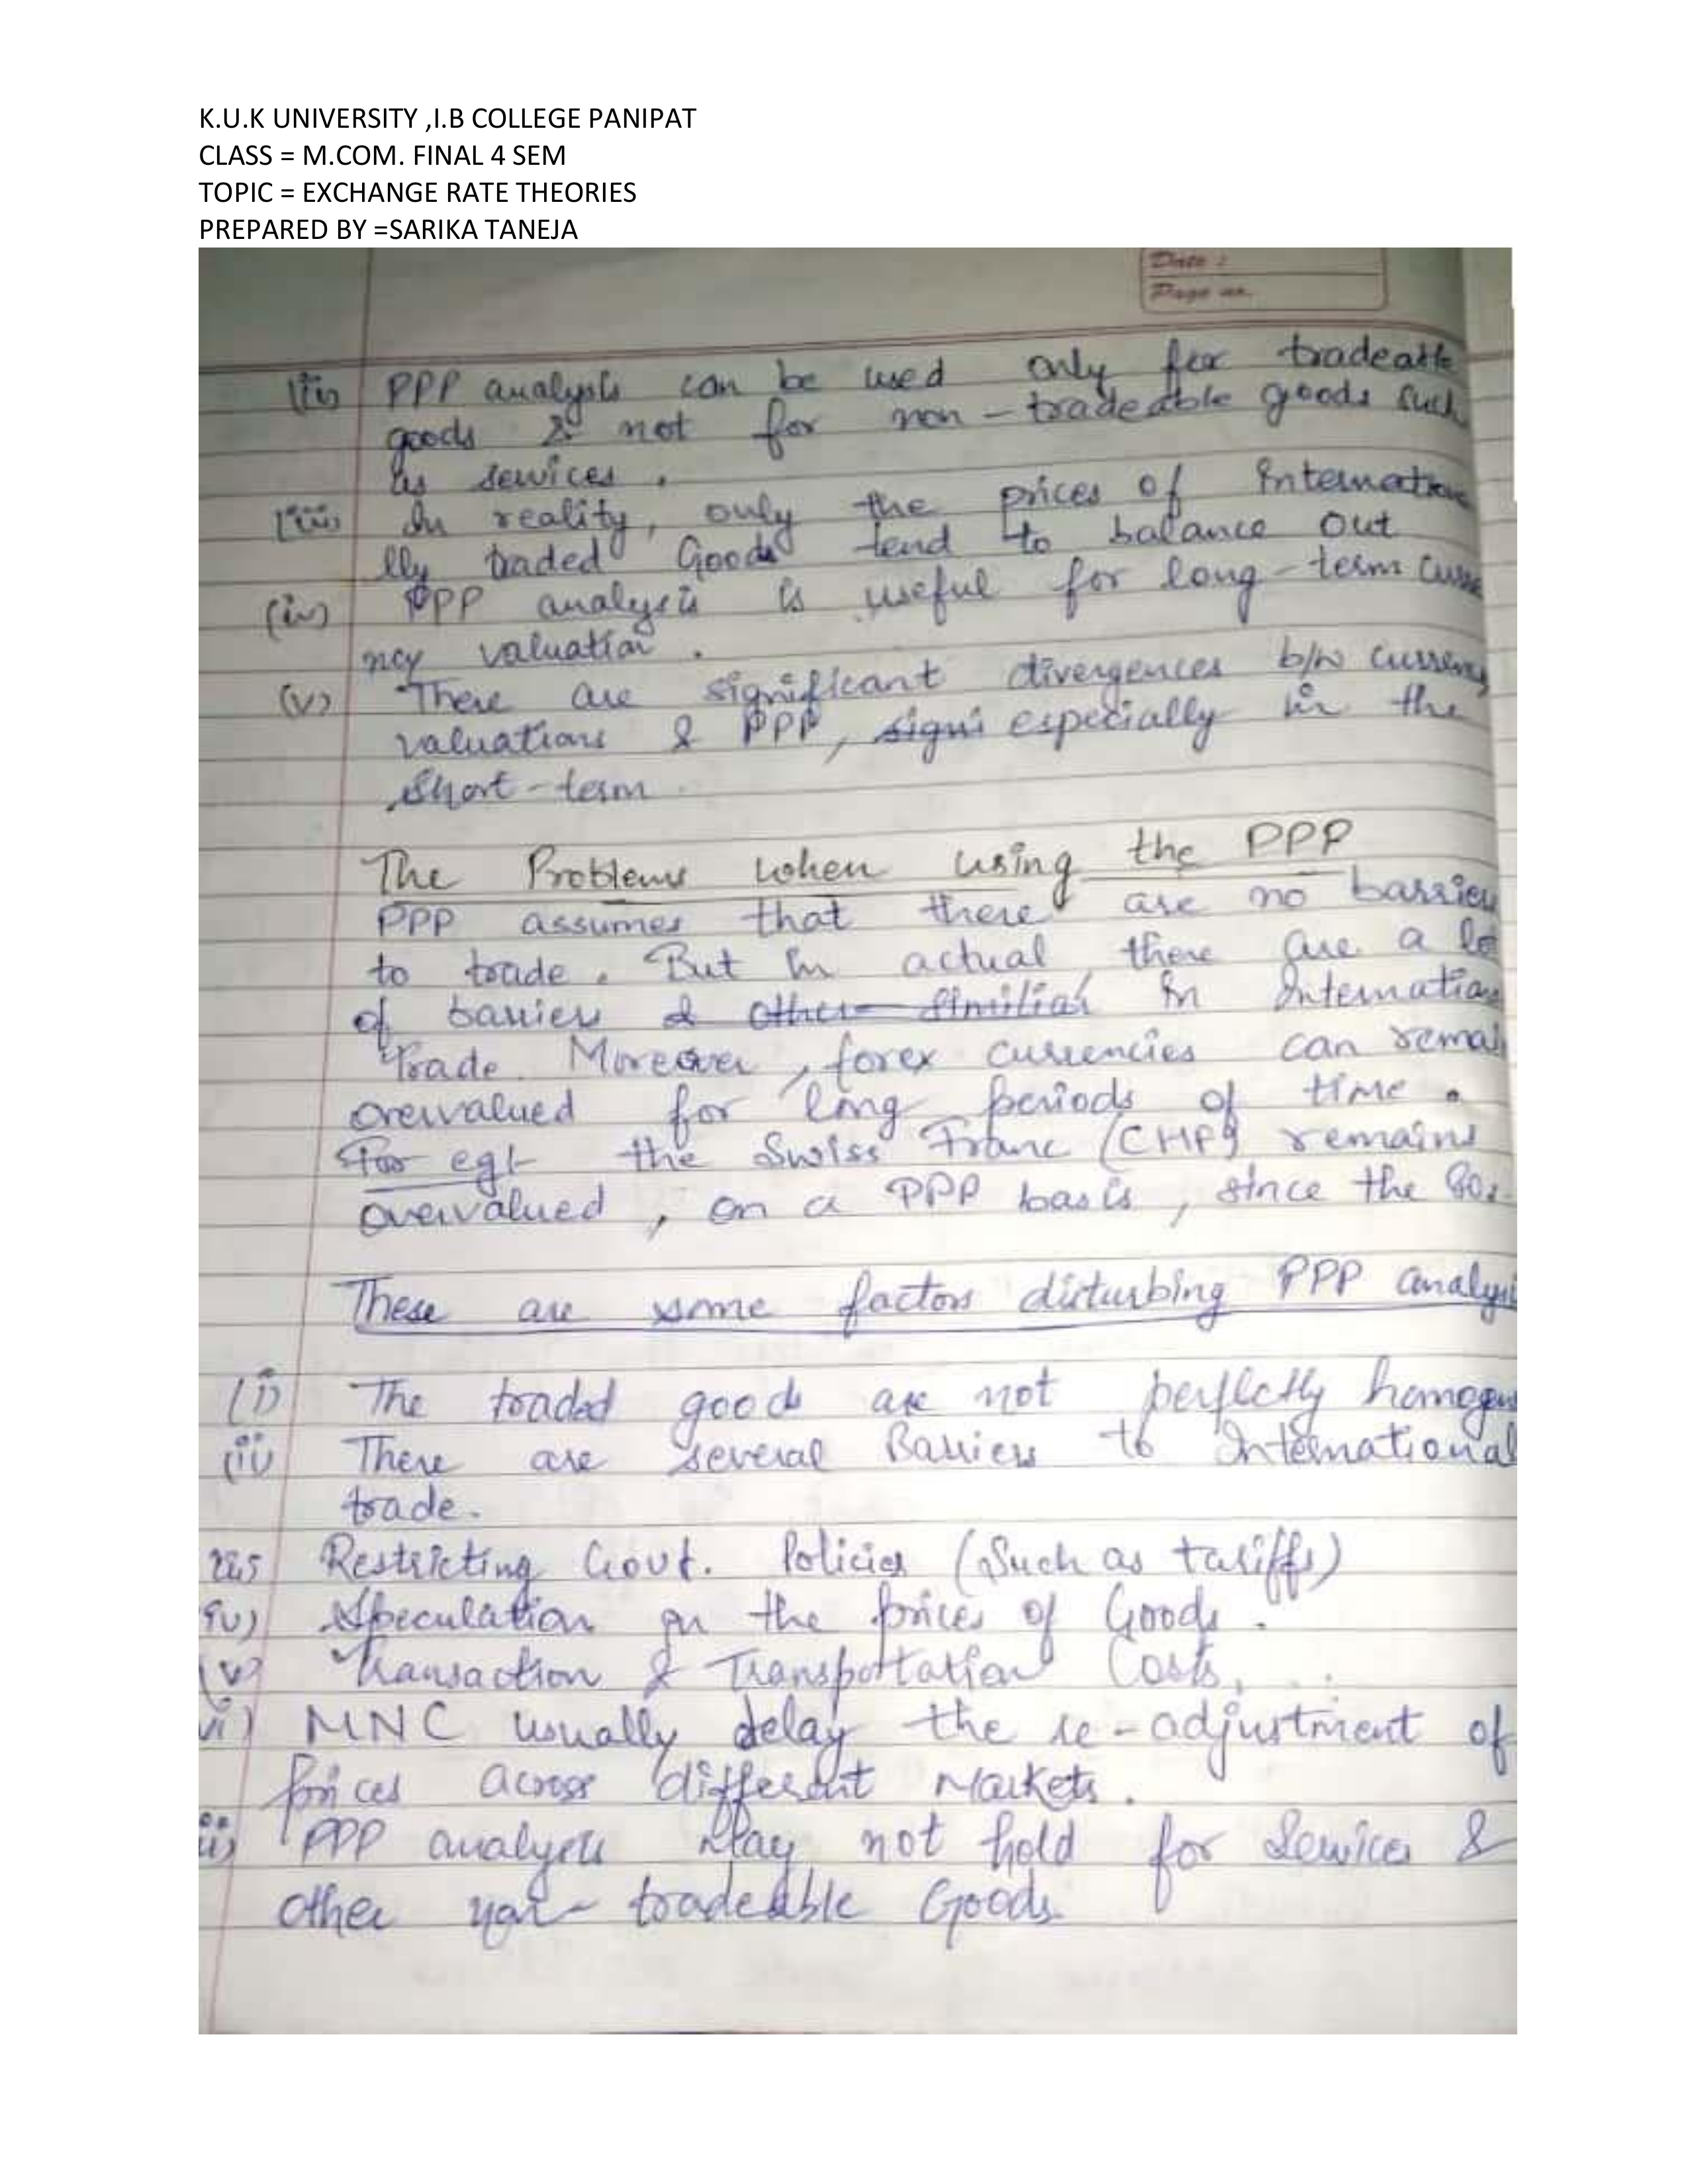 K.U.K UNIVERSITY ,I.B COLLEGE PANIPAT
CLASS = M.COM. FINAL 4 SEM
TOPIC = EXCHANGE RATE THEORIES
PREPARED BY =SARIKA TANEJA
Date :
Page no.
(ii) PPP analysis can be used only for tradeable
goods & not for non-tradeable goods such
as services.
(iii) In reality, only the prices of Internationa
lly traded Goods tend to balance out
(iv) PPP analysis is useful for long-term curre
ncy valuation.
(v) There are significant divergences b/w currency
valuations & PPP, signi especially in the
short-term
The Problems when using the PPP
PPP assumes that there are no barriers
to trade. But in actual, there are a lot
of barriers & other similiar in Internation
Trade. Moreover, forex currencies can remai
overvalued for long periods of time.
For eg:- the Swiss Franc (CHF) remains
overvalued, on a PPP basis, since the 80s
These are some factors disturbing PPP analysi
(i) The traded goods are not perfectly homogen
(ii) There are several Barriers to International
trade.
iii) Restricting Govt. Policies (Such as tariffs)
iv) Speculation on the prices of Goods.
(v) Transaction & Transportation Costs.
vi) MNC usually delay the re-adjustment of
prices across different Markets.
ii) PPP analysis May not hold for Services &
other non-tradeable Goods